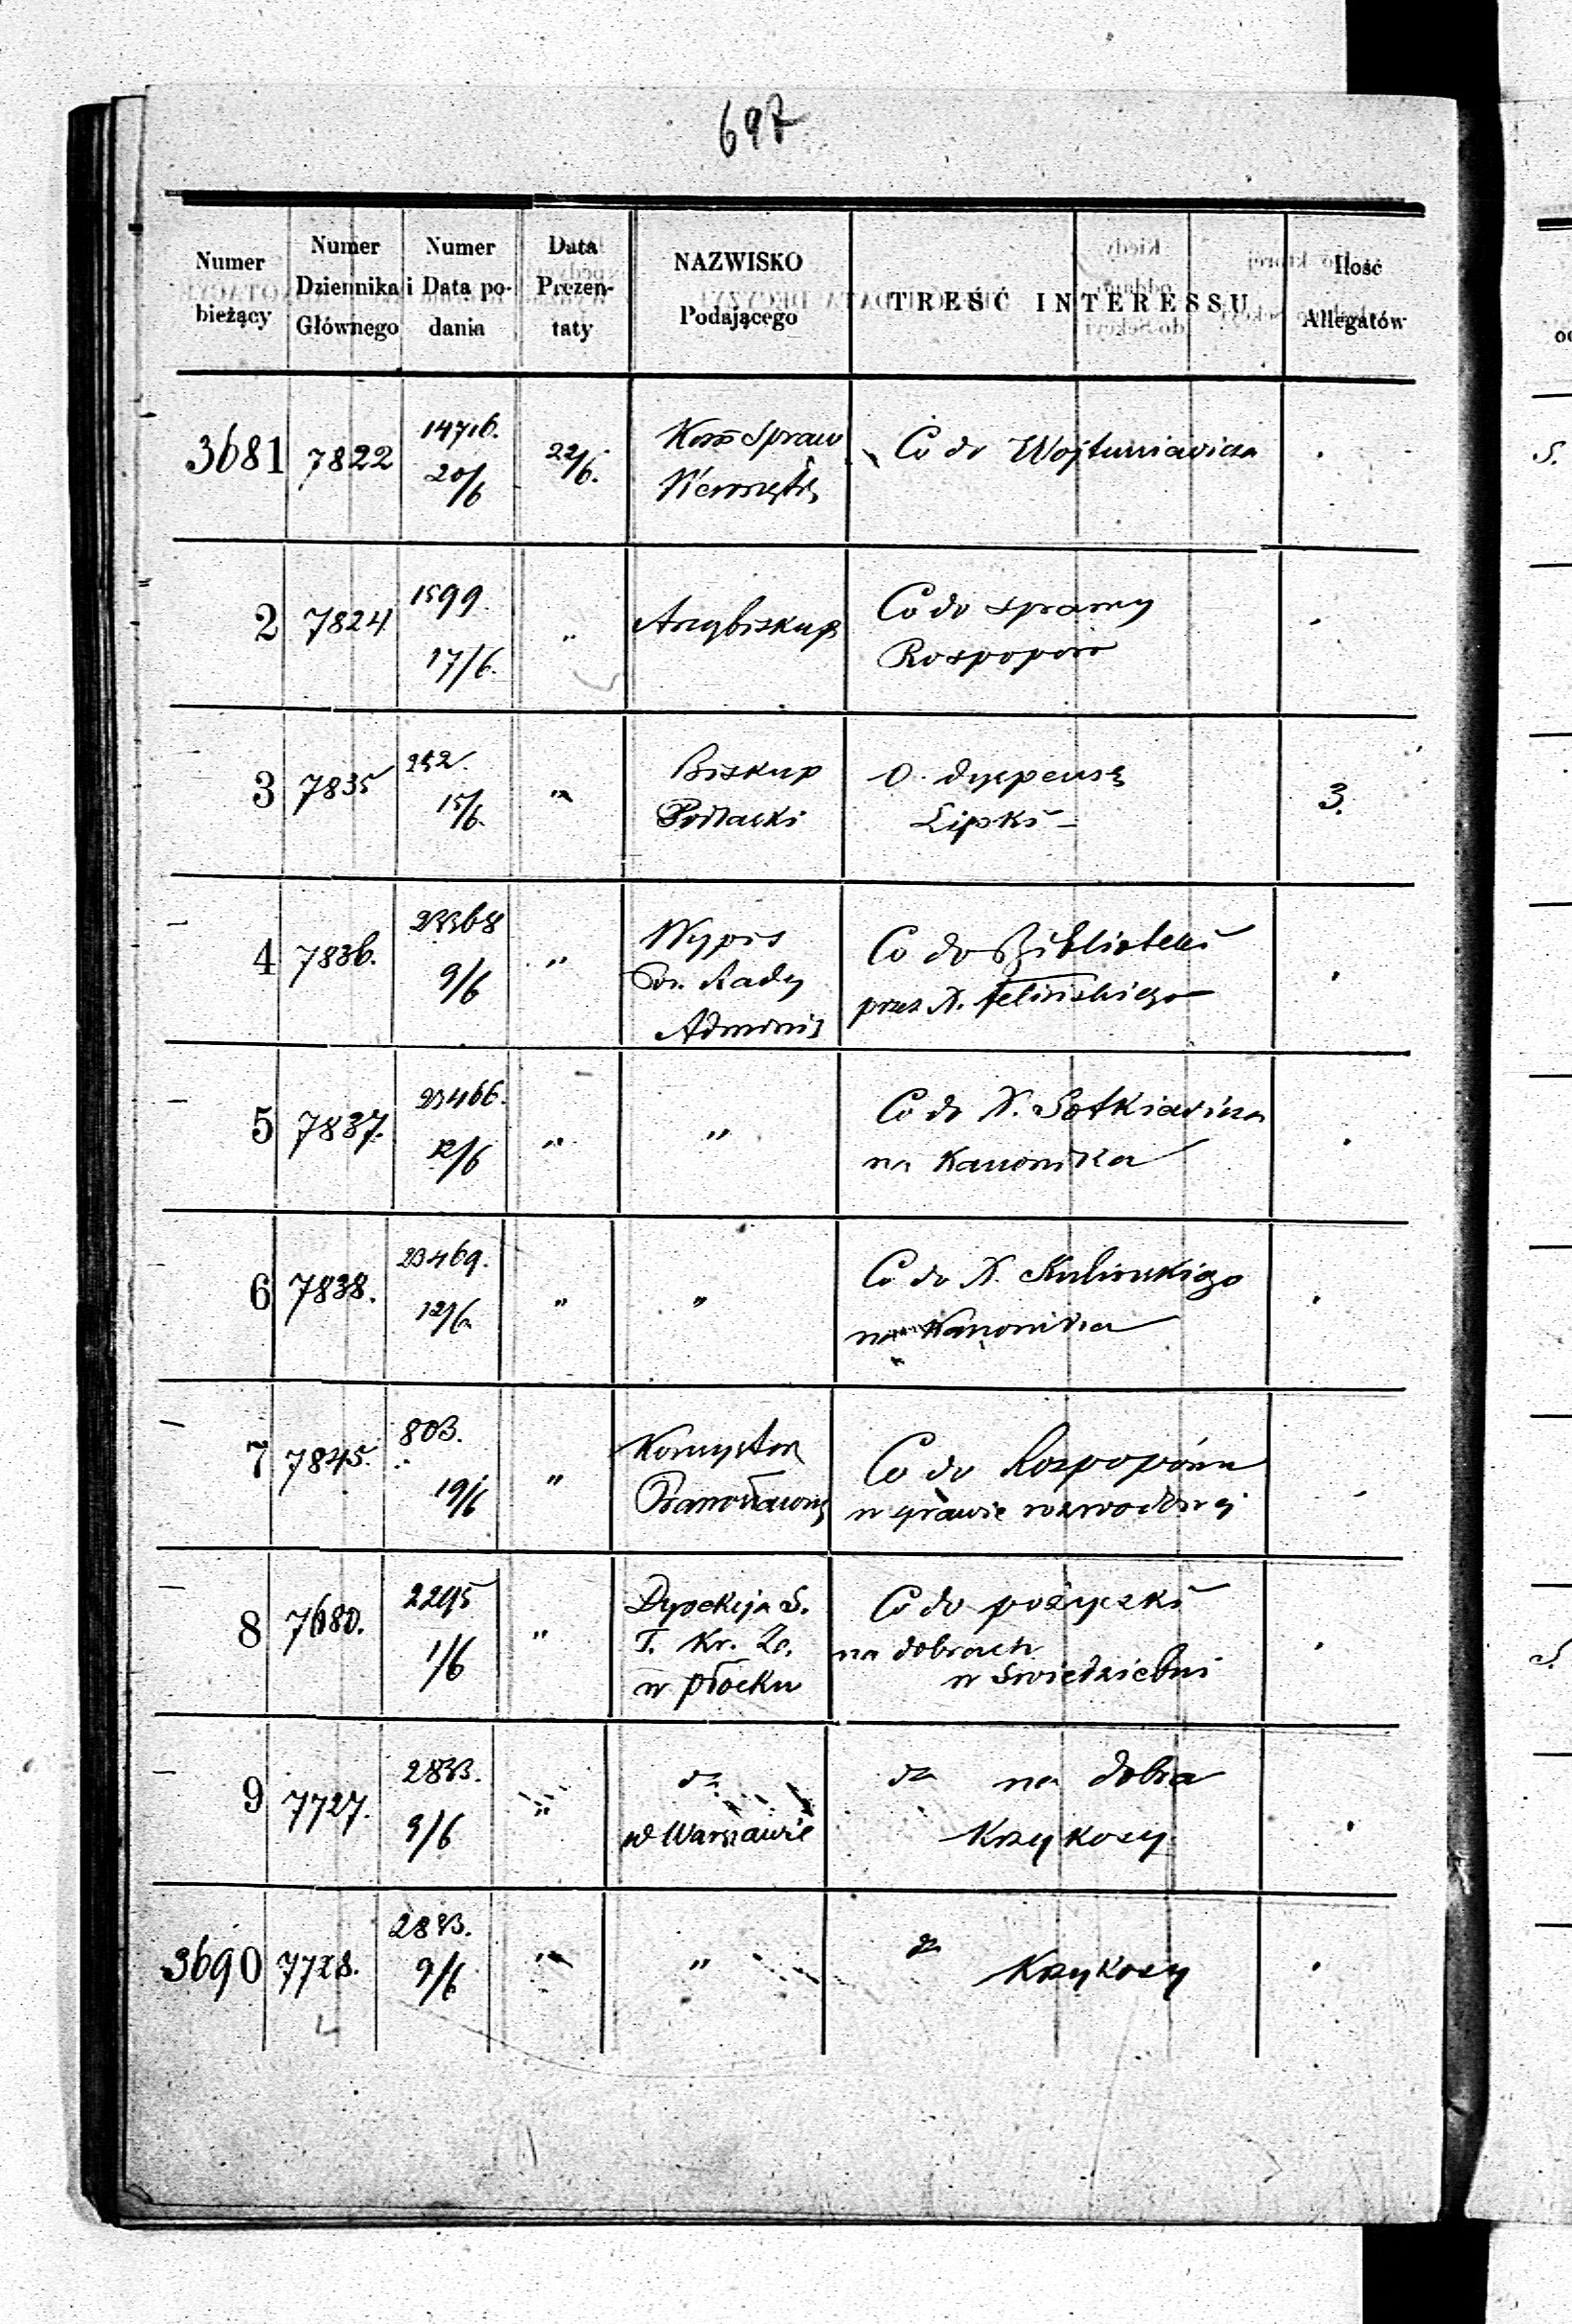 697
Numer bieżący
Numer Dziennika Głównego
Numer i Data podania
Data Prezentaty
NAZWISKO Podającego
TREŚĆ INTERESSU
Ilość Allegatów
3681 7822 14716. 20/6 22/6. Kom Spraw Co do Wojtuniawicza
2 7824 1599. 17/6. " Arcybiskup Co do sprawy
Rospopów
3 7835 252. 15/6. " Biskup O. dyspensę
Podlaski Lipki 3.
4 7836. 23368 9/6 " Wypis Co do Biblioteki
Rady przez X. Felińskiego
Adminis
5 7837. 23466. 12/6 " " Co do X. Sotkiewicza
na Kanonika
6 7838. 23469. 12/6. " " Co do X.
na Kanonika
7 7845. 803. 19/6 " Konsystorz Co do Rospopówn
w sprawie rozwodowej
8 7680. 2295 1/6 " Dyrekcja S. Co do pożyczki
T. Kr. Zo. na dobrach
w Płocku w Swiedziebni
9 7727. 2833. 9/6 " do do na dobra
w Warszawie Krzykosy
3690 7728. 2833. 9/6 " " do Krzykosy